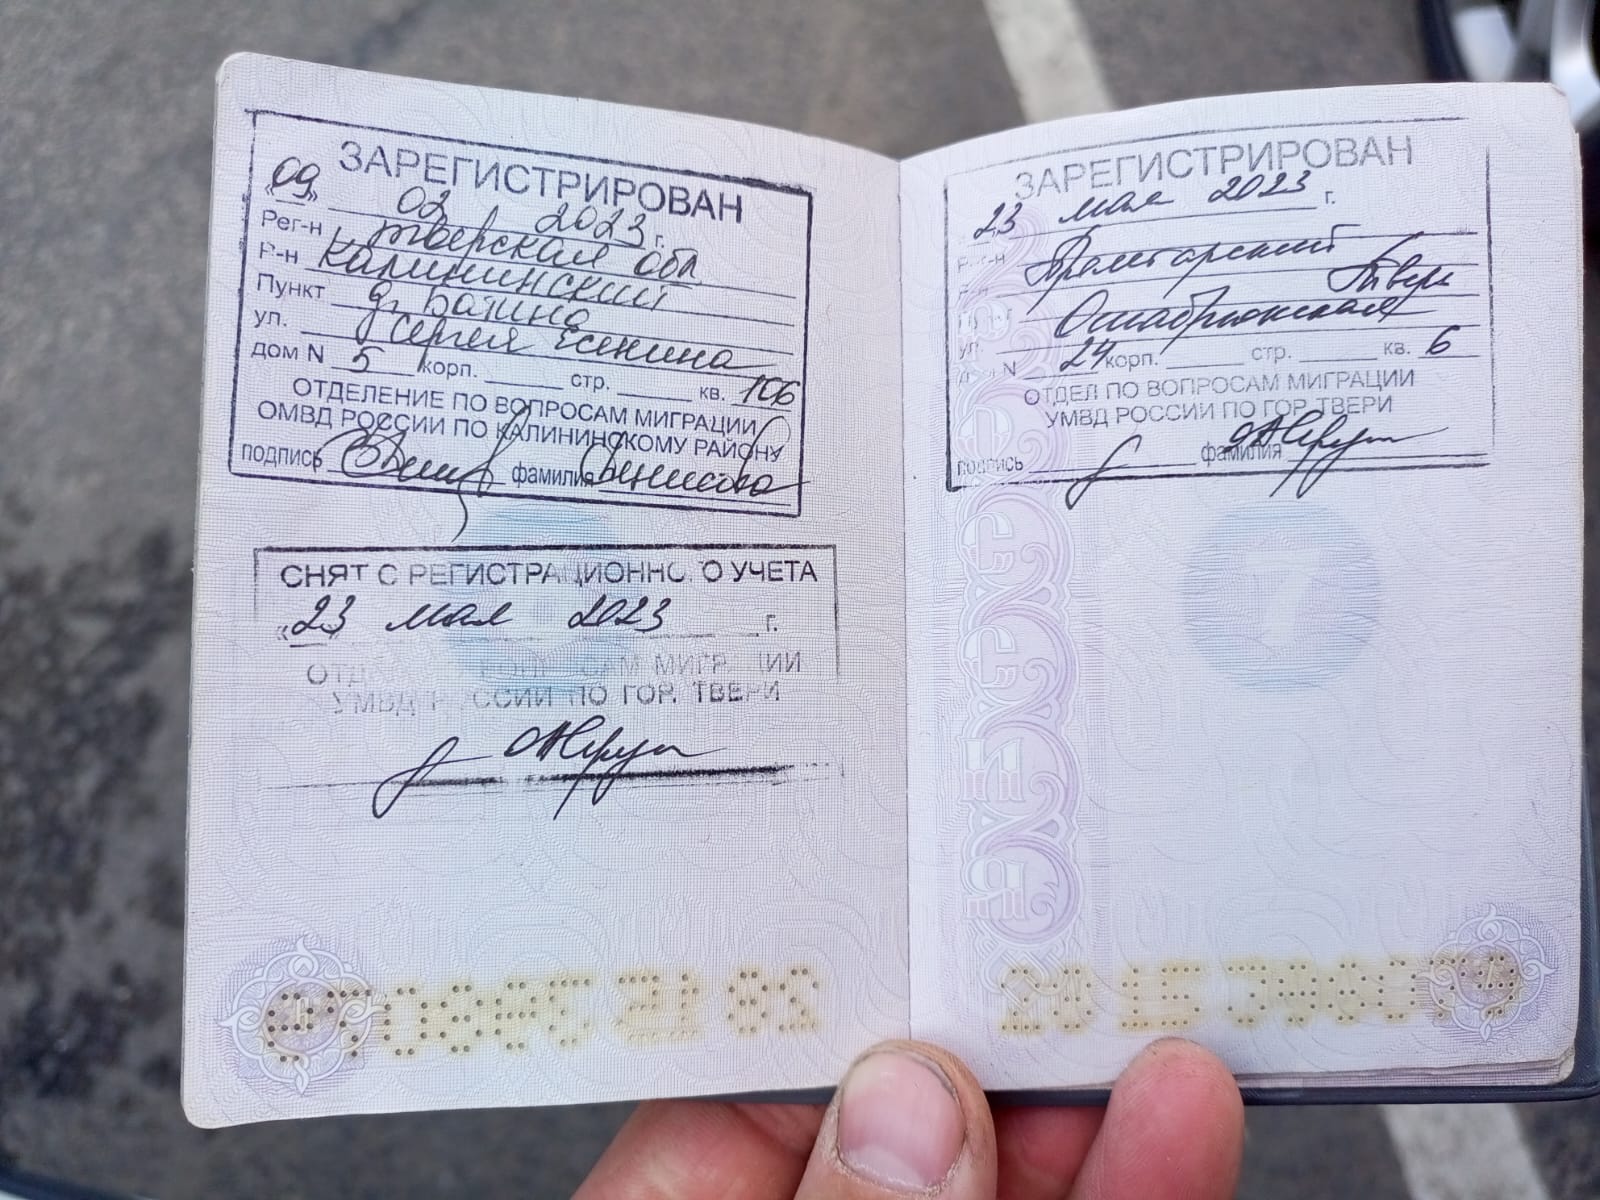 ЗАРЕГИСТРИРОВАН
«09» 02 2023 г.
Рег-н Тверская обл
Р-н Калининский
Пункт д. Батино
ул. Сергея Есенина
дом N 5 корп. стр. кв. 106
ОТДЕЛЕНИЕ ПО ВОПРОСАМ МИГРАЦИИ
ОМВД РОССИИ ПО КАЛИНИНСКОМУ РАЙОНУ
подпись фамилия
СНЯТ С РЕГИСТРАЦИОННОГО УЧЕТА
«23 мая 2023 г.
ОТДЕЛ ПО ВОПРОСАМ МИГРАЦИИ
УМВД РОССИИ ПО ГОР. ТВЕРИ
ЗАРЕГИСТРИРОВАН
23 мая 2023 г.
Рег-н Пролетарский
Тверь
ул. Октябрьская
24 корп. стр. кв. 6
ОТДЕЛ ПО ВОПРОСАМ МИГРАЦИИ
УМВД РОССИИ ПО ГОР. ТВЕРИ
подпись фамилия